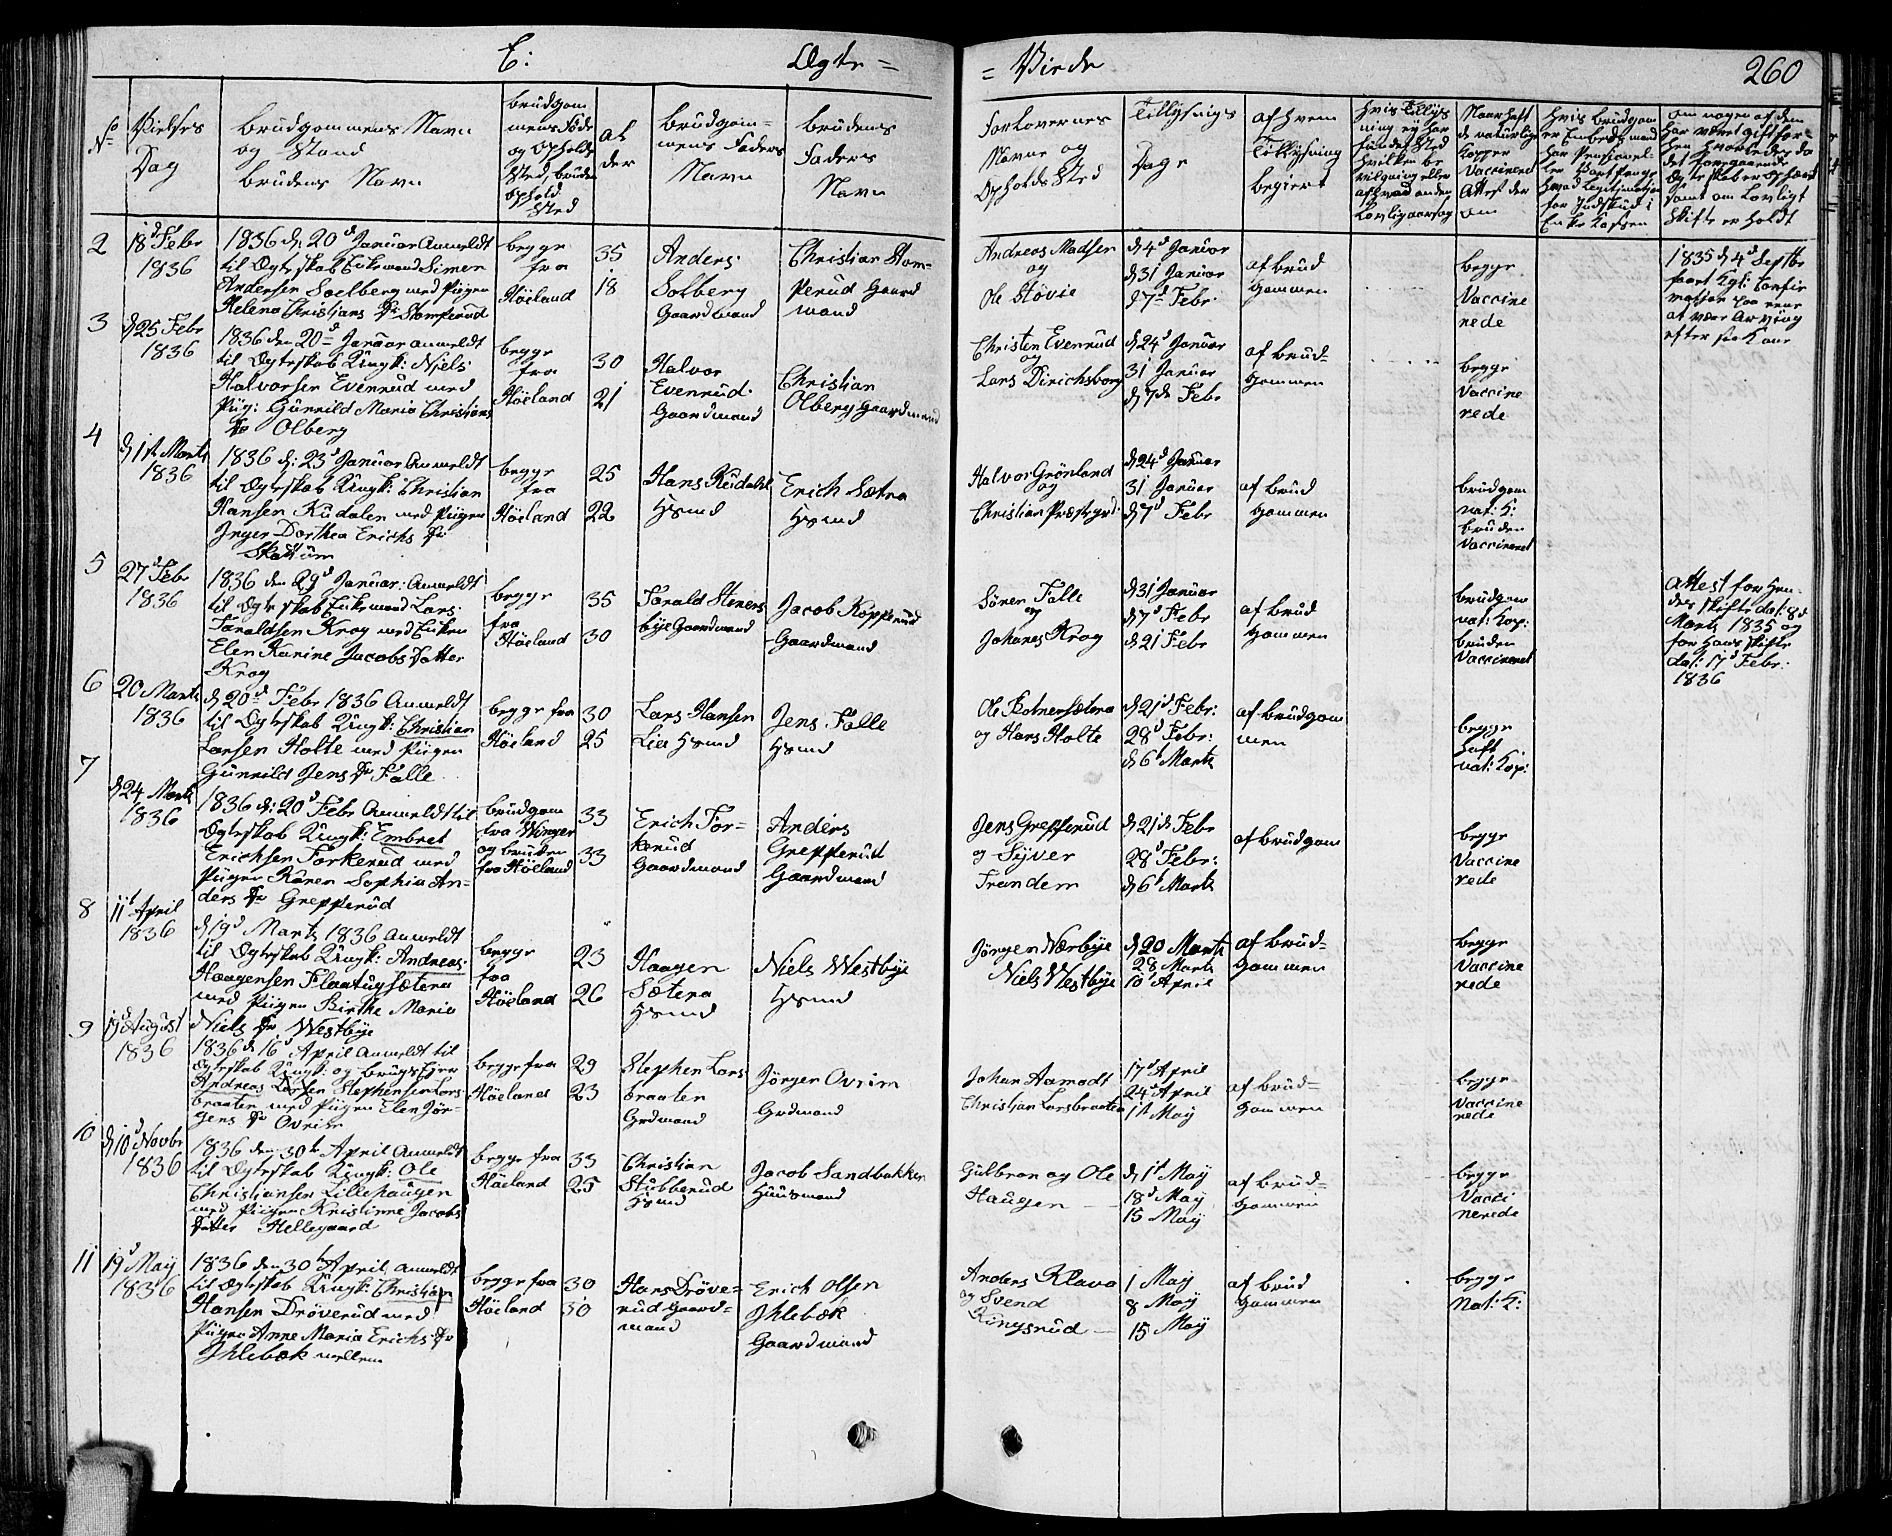 E:
Ægte =
= Viede
260
No
Vielses
Dag
Brudgommens Navn
og Stand
Brudens Navn
Brudgom
mens Føde
og Opholds
Sted, Brudens
Ophold
Sted
Al
der
Brudgom=
mens Faders
Navn
Brudens
Faders
Navn
Forlovernes
Navne og
Opholds Sted
Tillysnings
Dage
af hvem
Tillysning
begiert
Hvis Tillys
ning ej har
fundet Sted
hvilken be
vilgning eller
af hvad anden
Lovlig aarsag
Naar haft
de naturlige
Kopper
Vaccineret
Attest der
om
Hvis Brudgom
er Embedsmand
har Pensionel
ler
hvad Legitimation
for Indskud i
Enke Kassen
Om nogen af dem
har været gift før=
hen hvorledes da
det foregaaende
Ægteskab er ophævet
samt om Lovligt
Skifte er holdt
2
18d Febr
1836
1836 d: 20d Januar Anmeldt
til Ægteskab Enkemand Simen
Andersen Soelberg med Pigen
Helena Christians Dr Stomperud
begge
fra
Höeland
35
18
Anders
Solberg
Gaardmand
Christian Stom=
perud Gaard
mand
Andreas Madsen
og
Ole Støvie
d 4d Januar
d 31 Januar
d 7d Febr.
af brud
gommen
begge
Vaccine
rede
1835 d 4d Septbr
faaet Kgl: Confir
mation paa
at være Arving
efter sin Kone
3
d 25 Febr
1836
1836 den 20d Januar anmeldt
til Ægteskab Ungk: Niels
Halvorsen Evenrud med
Pig: Gunnild Maria Christians
Dr Olberg
begge
fra
Höeland
30
21
Halvor
Evenrud
Gaardmand
Christian
Olberg Gaardmand
Christen Evenrud
og
Lars Dirichsborg
d 24d Januar
31 Januar
d 7de Febr
af brud=
gommen
begge
Vaccine
rede
4
d 1st Marts
1836
1836 d: 23d Januar Anmeldt
til Ægteskab Ungk: Christian
Hansen Kudalen med Pigen
Inger Dorthea Erichs Dr
Skattum
begge
fra
Höeland
25
22
Hans Kudalen
Hsmd
Erich Sætra
Hsmd
Halvor Grönland
og
Christian Præstegrd:
d 24d Januar
31 Januar
d 7d Febr
af brud
gommen
brudgom
nat: K:
bruden
Vaccineret
5
27d Febr
1836
1836 den 29d Januar: Anmeldt
til Ægteskab Enkemand Lars
Taraldsen Krog med Enken
Elen Karine Jacobs Datter
Krog
begge
fra
Höeland
35
30
Tarald Steners
bye Gaardmand
Jacob Kopperud
Gaardmand
Sören Falle
og
Johanes Krog
d 31 Januar
d 7d Febr
d 21 Febr
af brud
gommen
brudgom
nat: Kop:
bruden
Vaccineret
Attest for Hen
des Skifte dat: 8d
Marts 1835 og
for Hans Skifte
dat: 17d Febr:
1836
6
20 Marts
1836
d 20d Febr 1836 Anmeldt
til Ægteskab Ungk: Christian
Larsen Holte med Pigen
Gunnild Jens Dr Falle
begge fra
Höeland
30
25
Lars Hansen
Lier Hsmd
Jens Falle
Hsmd
og Hans Holte
d 21d Febr:
28d Febr:
d 6t Marts
af brudgom
men
begge
haft
nat: Kop:
7
d 24 Marts
1836
1836 d: 20d Febr Anmeldt til
Ægteskab Ungk: Embret
Erichsen Torkerud med
Pigen Karen Sophia An=
ders Dr Grepperud
brudgom
fra Winger
og bruden
fra Höeland
33
33
Erich Tor=
kerud
Gaardmand
Anders
Grepperud
Gaardmand
Jens Grepperud
og Syver
Trandem
d 21de Febr
28d Febr:
d 6t Marts
af brudgom
begge
Vaccine
rede
8
11t April
1836
d 19d Marts 1836 Anmeldt
til Ægteskab Ungk: Andreas
Haagensen Flaatugsætera
med Pigen Birthe Maria
Niels Dr Westbye
begge
fra
Höeland
23
26
Haagen
Sætera
Hsmd
Niels Westbye
Hsmd
Jörgen Nærbye
Niels Westbye
d 20 Marts
28 Marts
10t April
af brud=
gommen
begge
Vaccine
rede
9
19d August
1836
1836 d 16d April Anmeldt til
Ægteskab Ungk: og
Andreas Stephensen Lars
braaten med Pigen Elen Jör=
gens Dr Ovrim
begge fra
Höeland
29
23
Stephen Lars
braaten
Grdmand
Jörgen Ovrim
Grdmand
Johan Aamodt
Christian Larsbraaten
17d April
24d April
1t May
af brud=
gommen
begge
Vaccine
rede
10
d 10d Novbr
1836
1836 den 30t April Anmeldt
til Ægteskab Ungk: Ole
Christiansen Lillehaugen
med Pigen Kristinne Jacobs
Datter Hellegaard
begge fra
Höeland
33
25
Christian
Stubberud
Hsmd
Jacob Sandbakken
Huusmand
Gulbran og Ole
Haugen
d 1t May
18d May
15 May
af brud=
gommen
begge
Vacci
nerede
11
19d May
1836
1836 den 30t April anmeldt
til Ægteskab Ungk: Christian
Hansen Dröverud med
Pigen Anne Maria Erichs Dr
Ihlebæk mellem
begge fra
Höeland
30
30
Hans Dröve=
rud Gaard=
mand
Erich Olsen
Ihlebæk
Gaardmand
Anders Klava
og Svend
Kringsrud
1 May
8 May
15 May
af brud
gommen
begge
Nat: K: